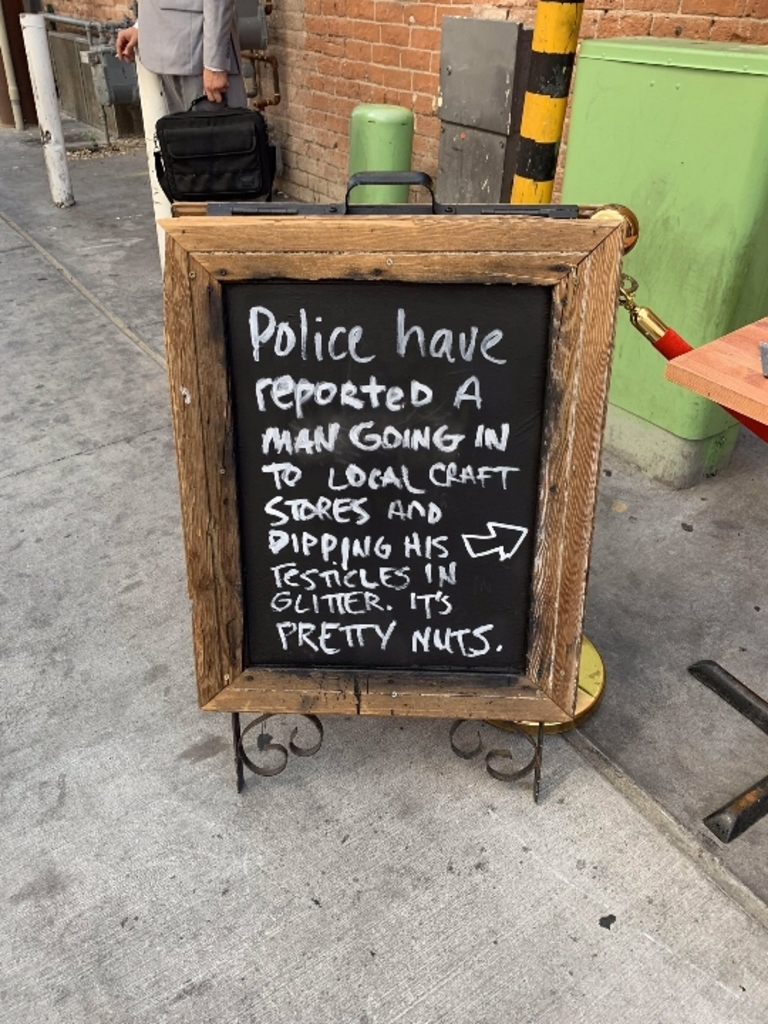 Police have
reported A
MAN GOING IN
TO LOCAL CRAFT
STORES AND
DIPPING HIS
TESTICLES IN
GLITTER. IT'S
PRETTY NUTS.